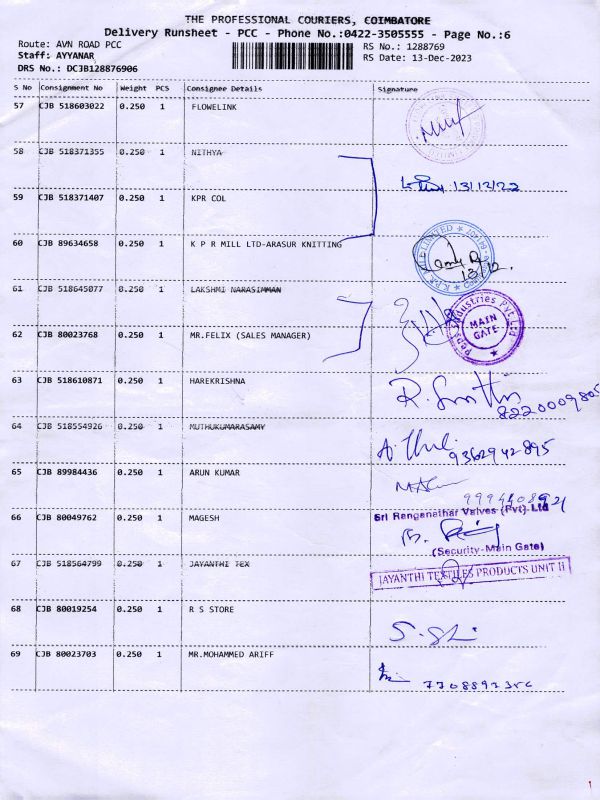 THE PROFESSIONAL COURIERS, COIMBATORE
Delivery Runsheet - PCC - Phone No.:0422-3505555 - Page No.:6
Route: AVN ROAD PCC
RS No.: 1288769
Staff: AYYANAR
RS Date: 13-Dec-2023
DRS No.: DCJB128876906
S No Consignment No Weight PCS Consignee Details Signature
57 CJB 518603022 0.250 1 FLOWELINK
58 CJB 518371355 0.250 1 NITHYA
13/12/23
59 CJB 518371407 0.250 1 KPR COL
60 CJB 89634658 0.250 1 K P R MILL LTD-ARASUR KNITTING
13/12.
61 CJB 518645077 0.250 1 LAKSHMI NARASIMMAN
62 CJB 80023768 0.250 1 MR.FELIX (SALES MANAGER)
Industries Pvt Ltd
MAIN
GATE
63 CJB 518610871 0.250 1 HAREKRISHNA
64 CJB 518554926 0.250 1 MUTHUKUMARASAMY
9362942895
65 CJB 89984436 0.250 1 ARUN KUMAR
66 CJB 80049762 0.250 1 MAGESH
Sri Ranganathar Valves (Pvt) Ltd
(Security-Main Gate)
67 CJB 518564799 0.250 1 JAYANTHI TEX
JAYANTHI TEXTILES PRODUCTS UNIT II
68 CJB 80019254 0.250 1 R S STORE
69 CJB 80023703 0.250 1 MR.MOHAMMED ARIFF